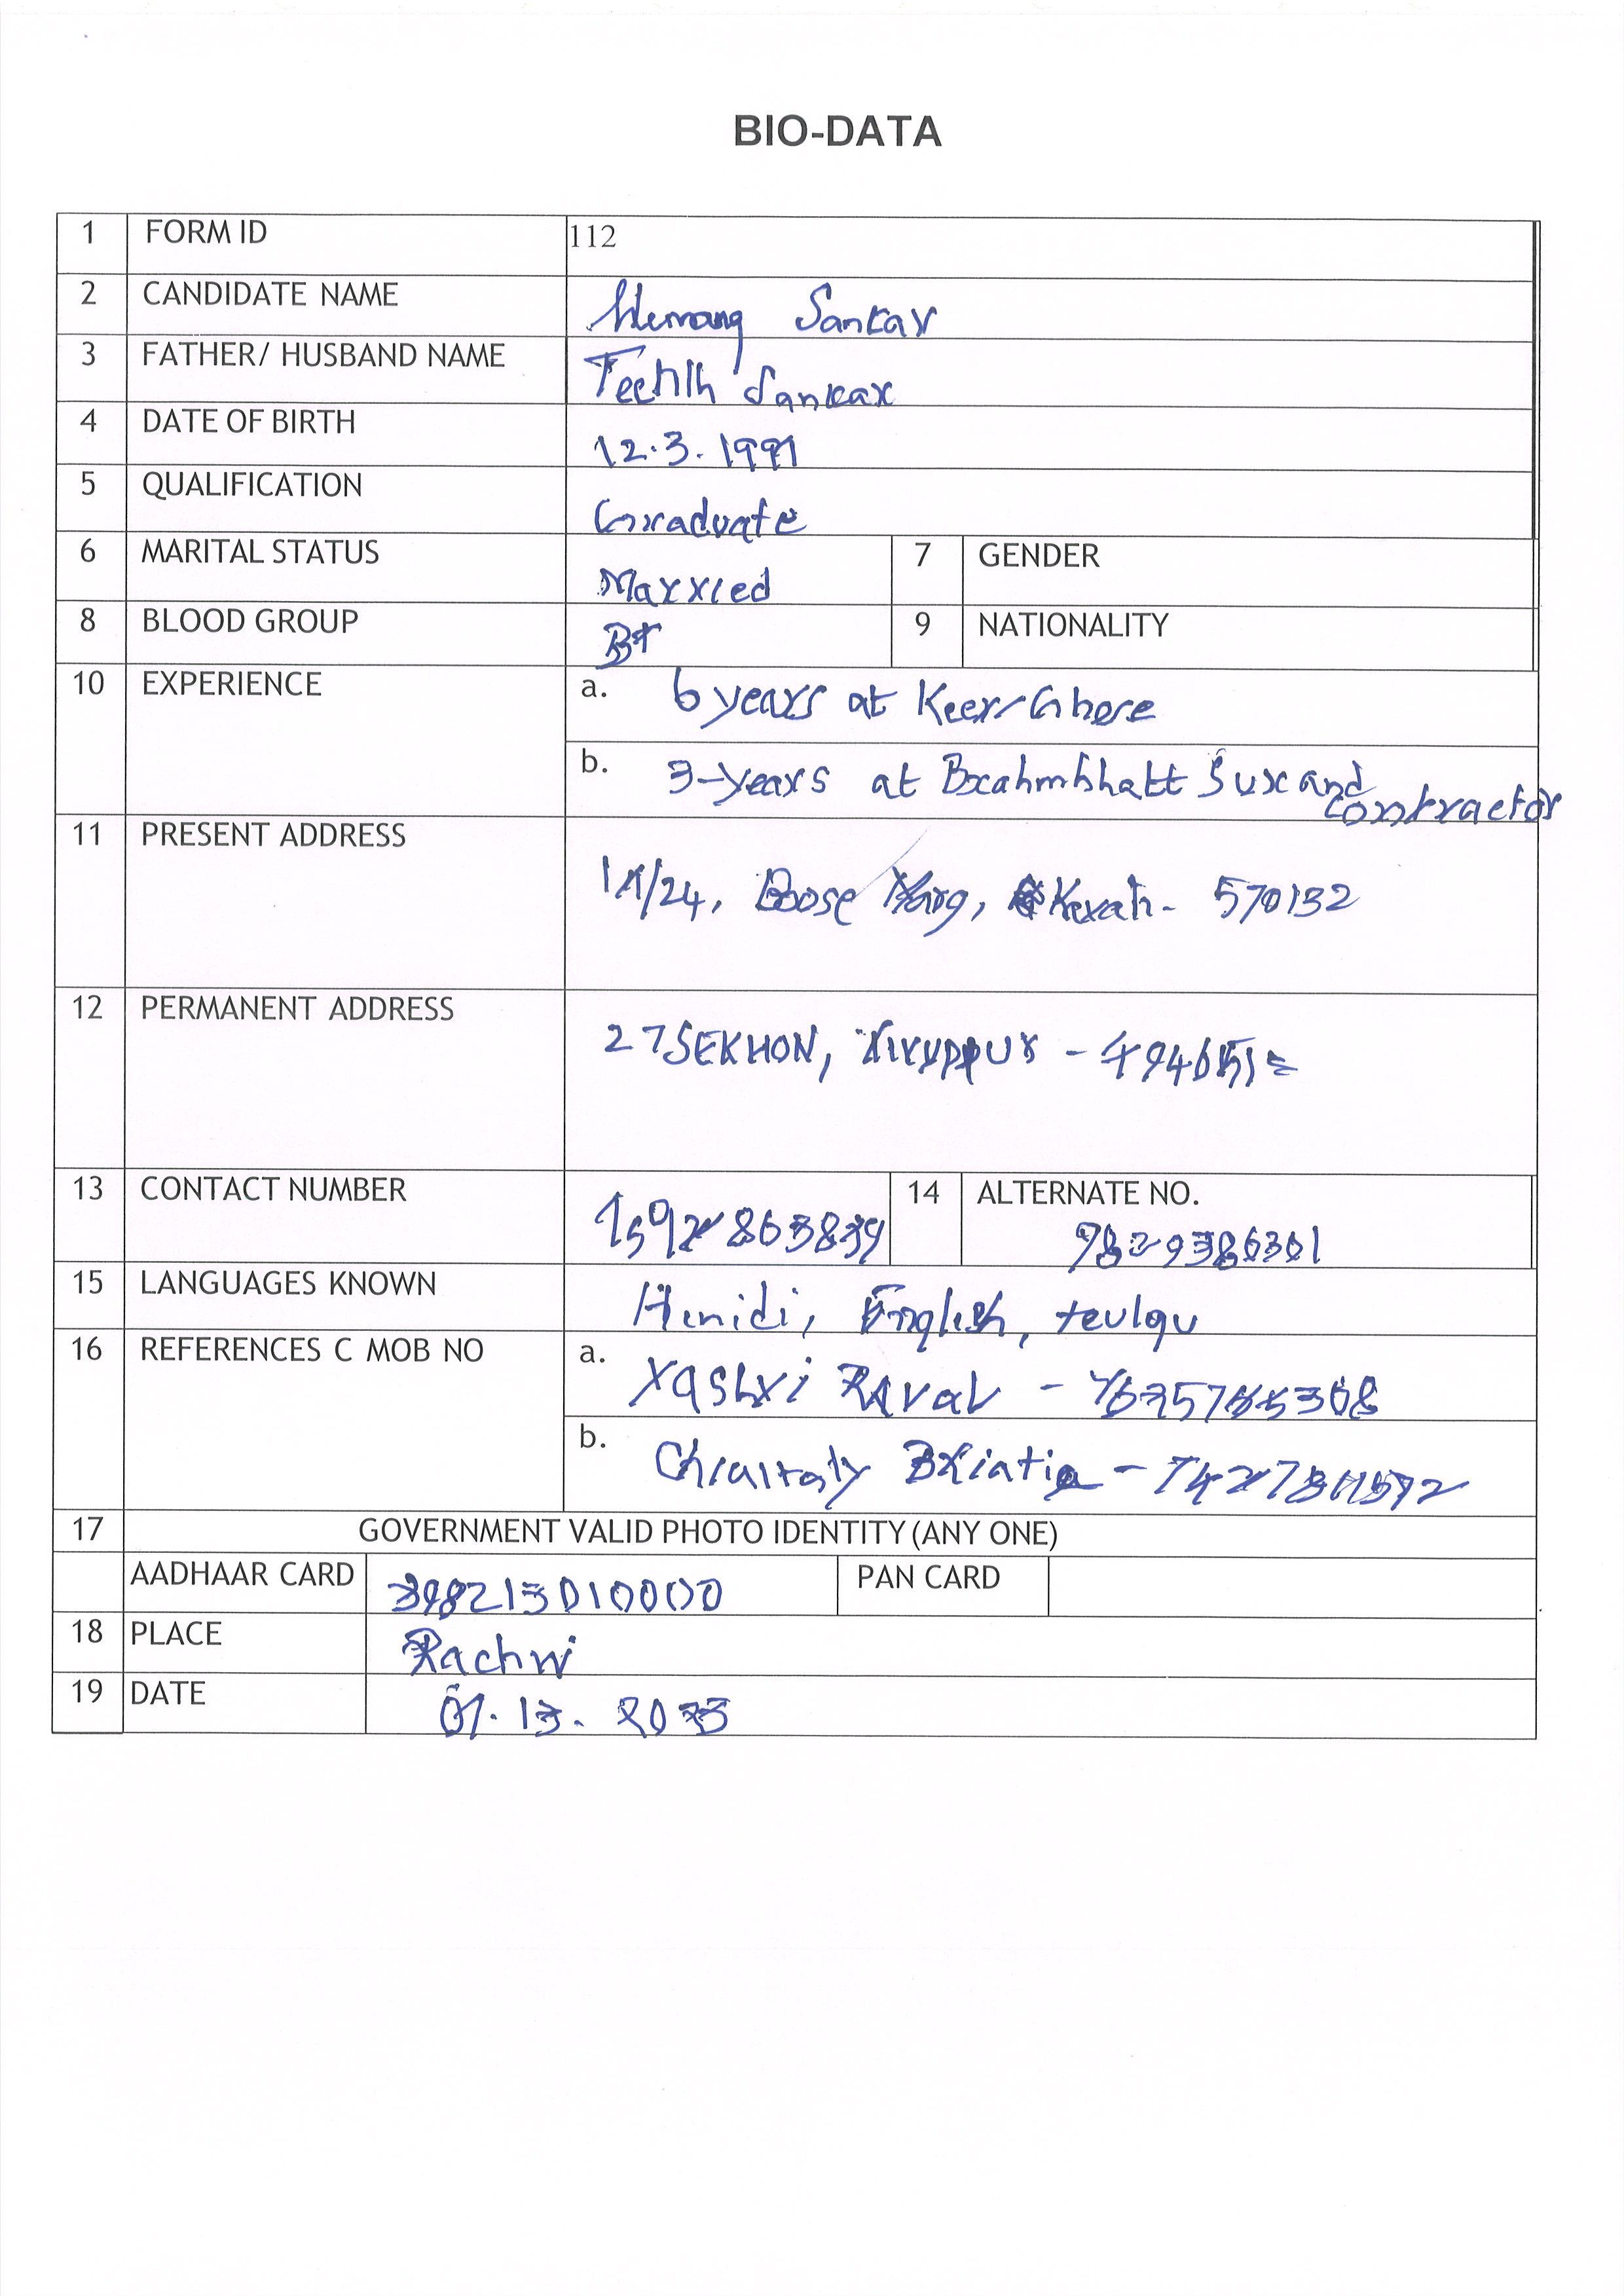 BIO-DATA
1 FORM ID 112
2 CANDIDATE NAME Hemang Sankar
3 FATHER/ HUSBAND NAME Sankar
4 DATE OF BIRTH 12.3.1991
5 QUALIFICATION Graduate
6 MARITAL STATUS Married 7 GENDER
8 BLOOD GROUP B+ 9 NATIONALITY
10 EXPERIENCE a. 6 years at Keer, Ghose
b. 3-years at Brahmbhatt Sur and
contractor
11 PRESENT ADDRESS
/24, Boose Marg, - 570132
12 PERMANENT ADDRESS
27 SEKHON, Tiruppur -
13 CONTACT NUMBER 14 ALTERNATE NO.
9829386301
15 LANGUAGES KNOWN Hinidi, English, teulgu
16 REFERENCES C MOB NO a. Yashvi Raval -
b. -
17 GOVERNMENT VALID PHOTO IDENTITY (ANY ONE)
AADHAAR CARD 398215010000 PAN CARD
18 PLACE
19 DATE